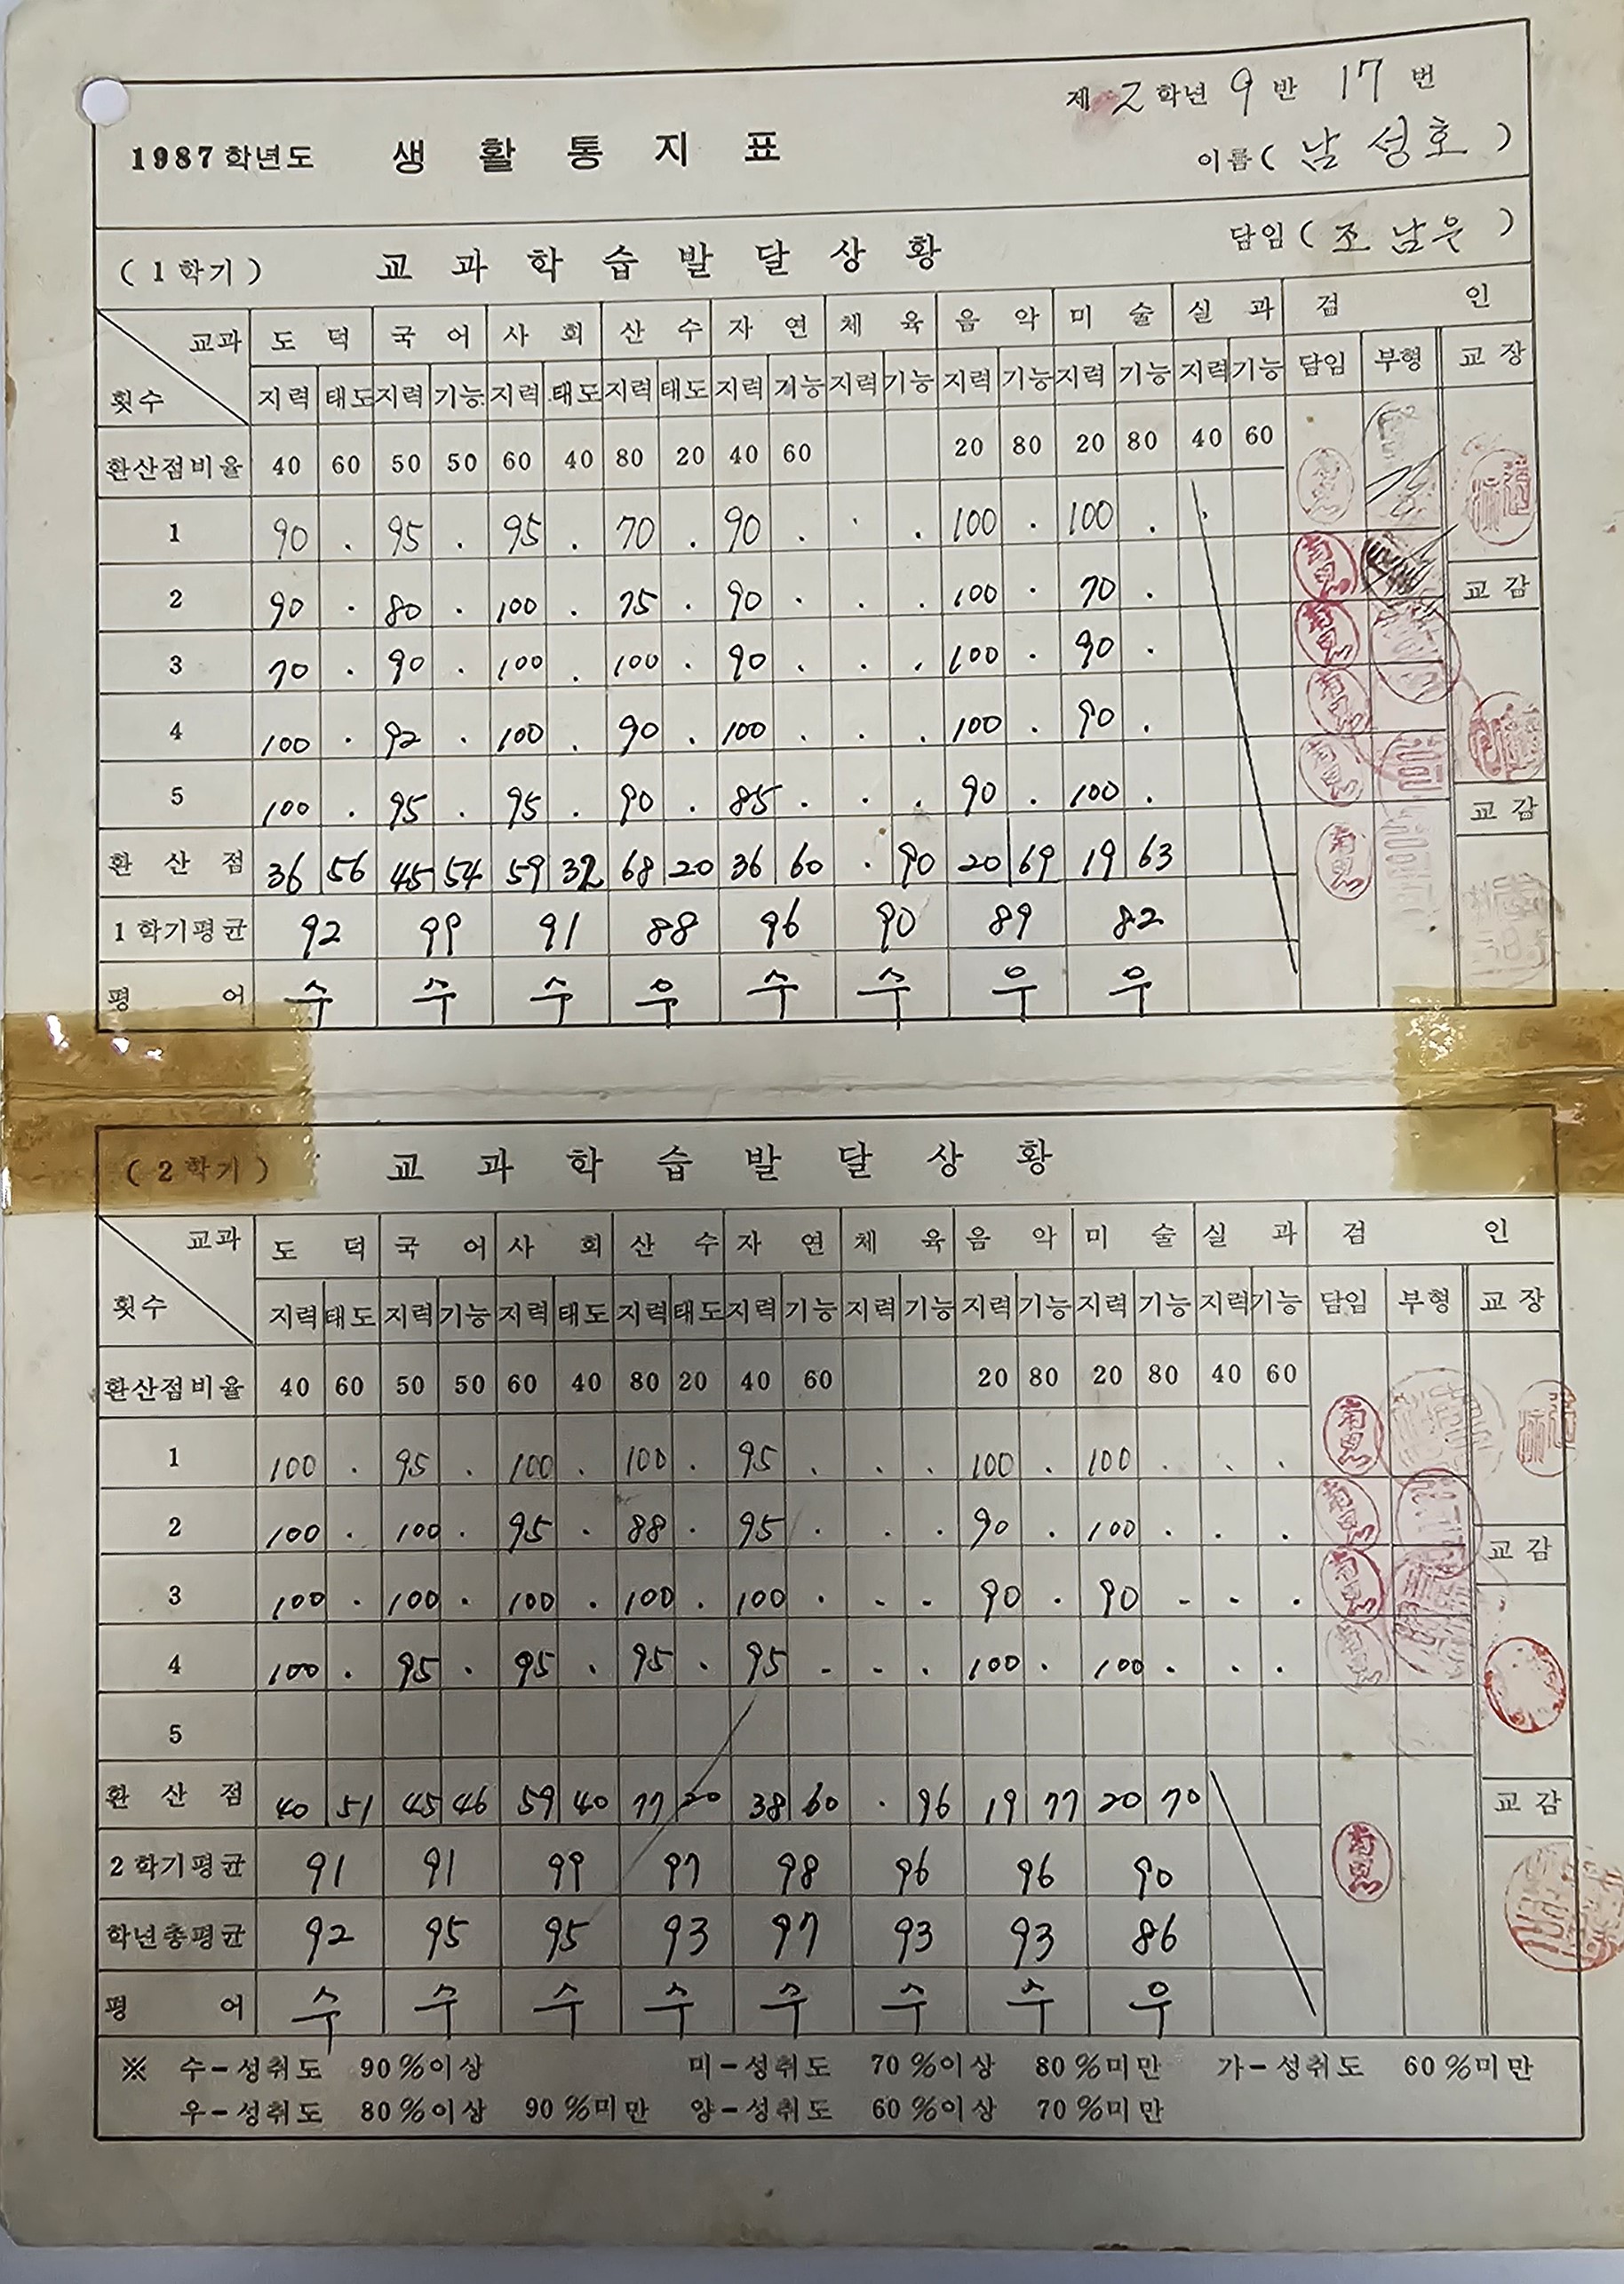 제 2 학년 9 반 17 번
1987 학년도 생 활 통 지 표
이름 ( 남 성호 )
담임 ( 조 남은 )
( 1 학기 ) 교 과 학 습 발 달 상 황
교과 도 덕 국 어 사 회 산 수 자 연 체 육 음 악 미 술 실 과 검 인
횟수 지력 태도 지력 기능 지력 태도 지력 태도 지력 기능 지력 기능 지력 기능 지력 기능 지력 기능 담임 부형 교 장
환산점비율 40 60 50 50 60 40 80 20 40 60 20 80 20 80 40 60
1 90 . 95 . 95 . 70 . 90 . . . 100 . 100 . .
2 90 . 80 . 100 . 75 . 90 . . . 100 . 70 .
교 감
3 70 . 90 . 100 . 100 . 90 . . . 100 . 90 .
4 100 . 92 . 100 . 90 . 100 . . . 100 . 90 .
5 100 . 95 . 95 . 90 . 85 . . . 90 . 100 .
교 감
환 산 점 36 56 45 54 59 32 68 20 36 60 . 90 20 69 19 63
1 학기평균 92 99 91 88 96 90 89 82
평 어 수 수 수 우 수 수 우 우
( 2 학기 ) 교 과 학 습 발 달 상 황
교과 도 덕 국 어 사 회 산 수 자 연 체 육 음 악 미 술 실 과 검 인
횟수 지력 태도 지력 기능 지력 태도 지력 태도 지력 기능 지력 기능 지력 기능 지력 기능 지력 기능 담임 부형 교 장
환산점비율 40 60 50 50 60 40 80 20 40 60 20 80 20 80 40 60
1 100 . 95 . 100 . 100 . 95 . . . 100 . 100 . . .
2 100 . 100 . 95 . 88 . 95 . . . 90 . 100 . . .
교 감
3 100 . 100 . 100 . 100 . 100 . - - 90 . 90 - . .
4 100 . 95 . 95 . 95 . 95 - - . 100 . 100 . . .
5
환 산 점 40 51 45 46 59 40 77 20 38 60 . 96 19 77 20 70
교 감
2 학기평균 91 91 99 97 98 96 96 90
학년총평균 92 95 95 93 97 93 93 86
평 어 수 수 수 수 수 수 수 우
※ 수-성취도 90%이상 미-성취도 70%이상 80%미만 가-성취도 60%미만
우-성취도 80%이상 90%미만 양-성취도 60%이상 70%미만